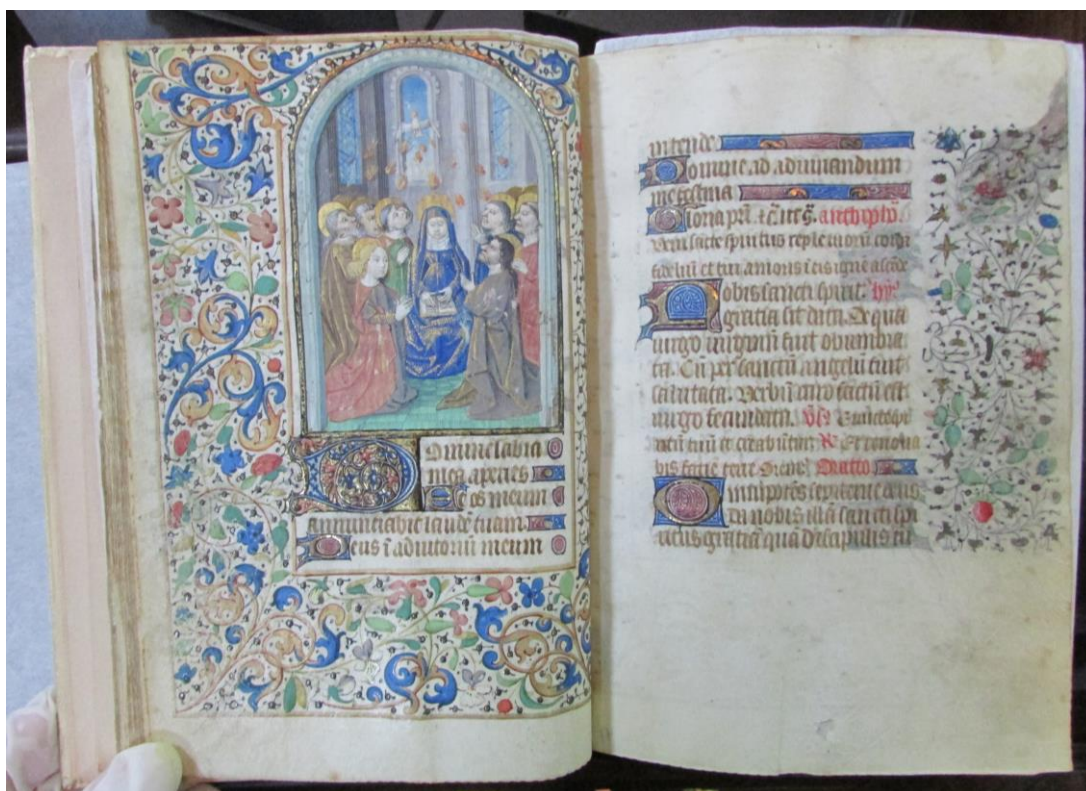 Domine labia
mea aperies
Et os meum
annunciabit laudē tuam
Deus ī adiutoriū meum
intende
Domine ad adiuuandum
me festina
Gloria pr̄i
Veni sācte spiritus reple tuorū corda
fideliū et tui amoris ī eis ignē ascēde
Nobis sancti spirit᷒ hy᷒
gratia sit data. De qua
uirgo uirginū fuit obumbra
ta. Cū per sanctū angelū fuit
salutata. Verbū caro factū est
uirgo fecundata. v̄s̄ Emitte spi
ritū tuū et creabūtur. R̄ Et renoua
bis faciē terre Oratio
Omnipotēs sempiterne deus
da nobis illā sancti spi
ritus gratiā quā discipulis tu